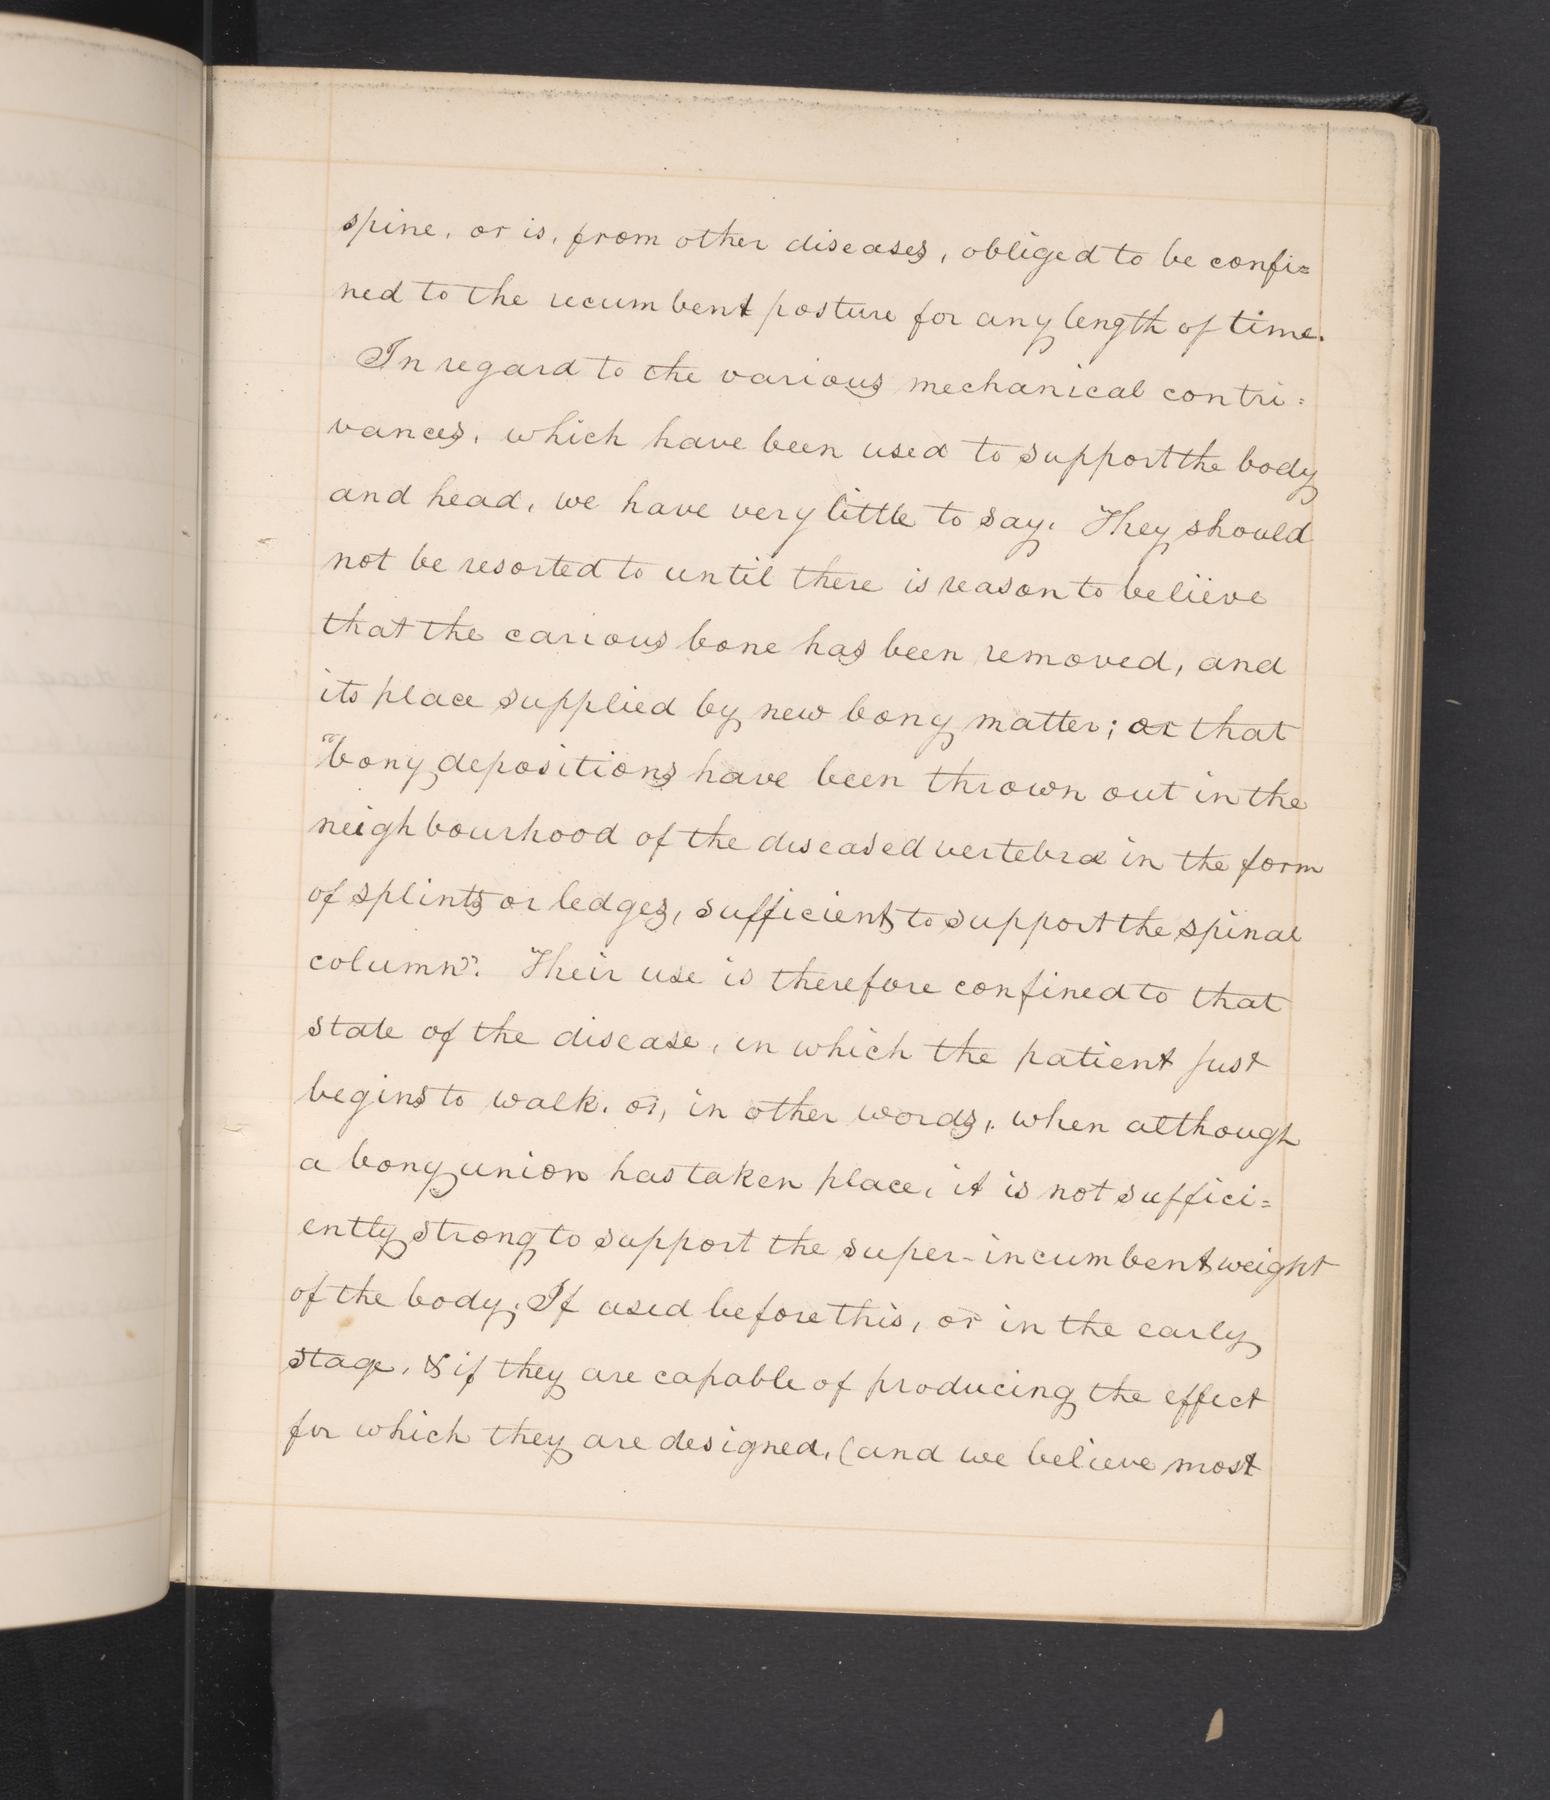 spine, or is, from other diseases, obliged to be confi=
ned to the recumbent posture for any length of time.
In regard to the various mechanical contri=
vances, which have been used to support the body
and head, we have very little to say. They should
not be resorted to until there is reason to believe
that the carious bone has been removed, and
its place supplied by new bony matter; or that
"bony depositions have been thrown out in the
neighbourhood of the diseased vertebræ in the form
of splints or ledges, sufficient to support the spinal
column". Their use is therefore confined to that
state of the disease, in which the patient just
begins to walk, or, in other words, when although
a bony union has taken place, it is not suffici=
ently strong to support the super-incumbent weight
of the body. If used before this, or in the early
stage, & if they are capable of producing the effect
for which they are designed, (and we believe most